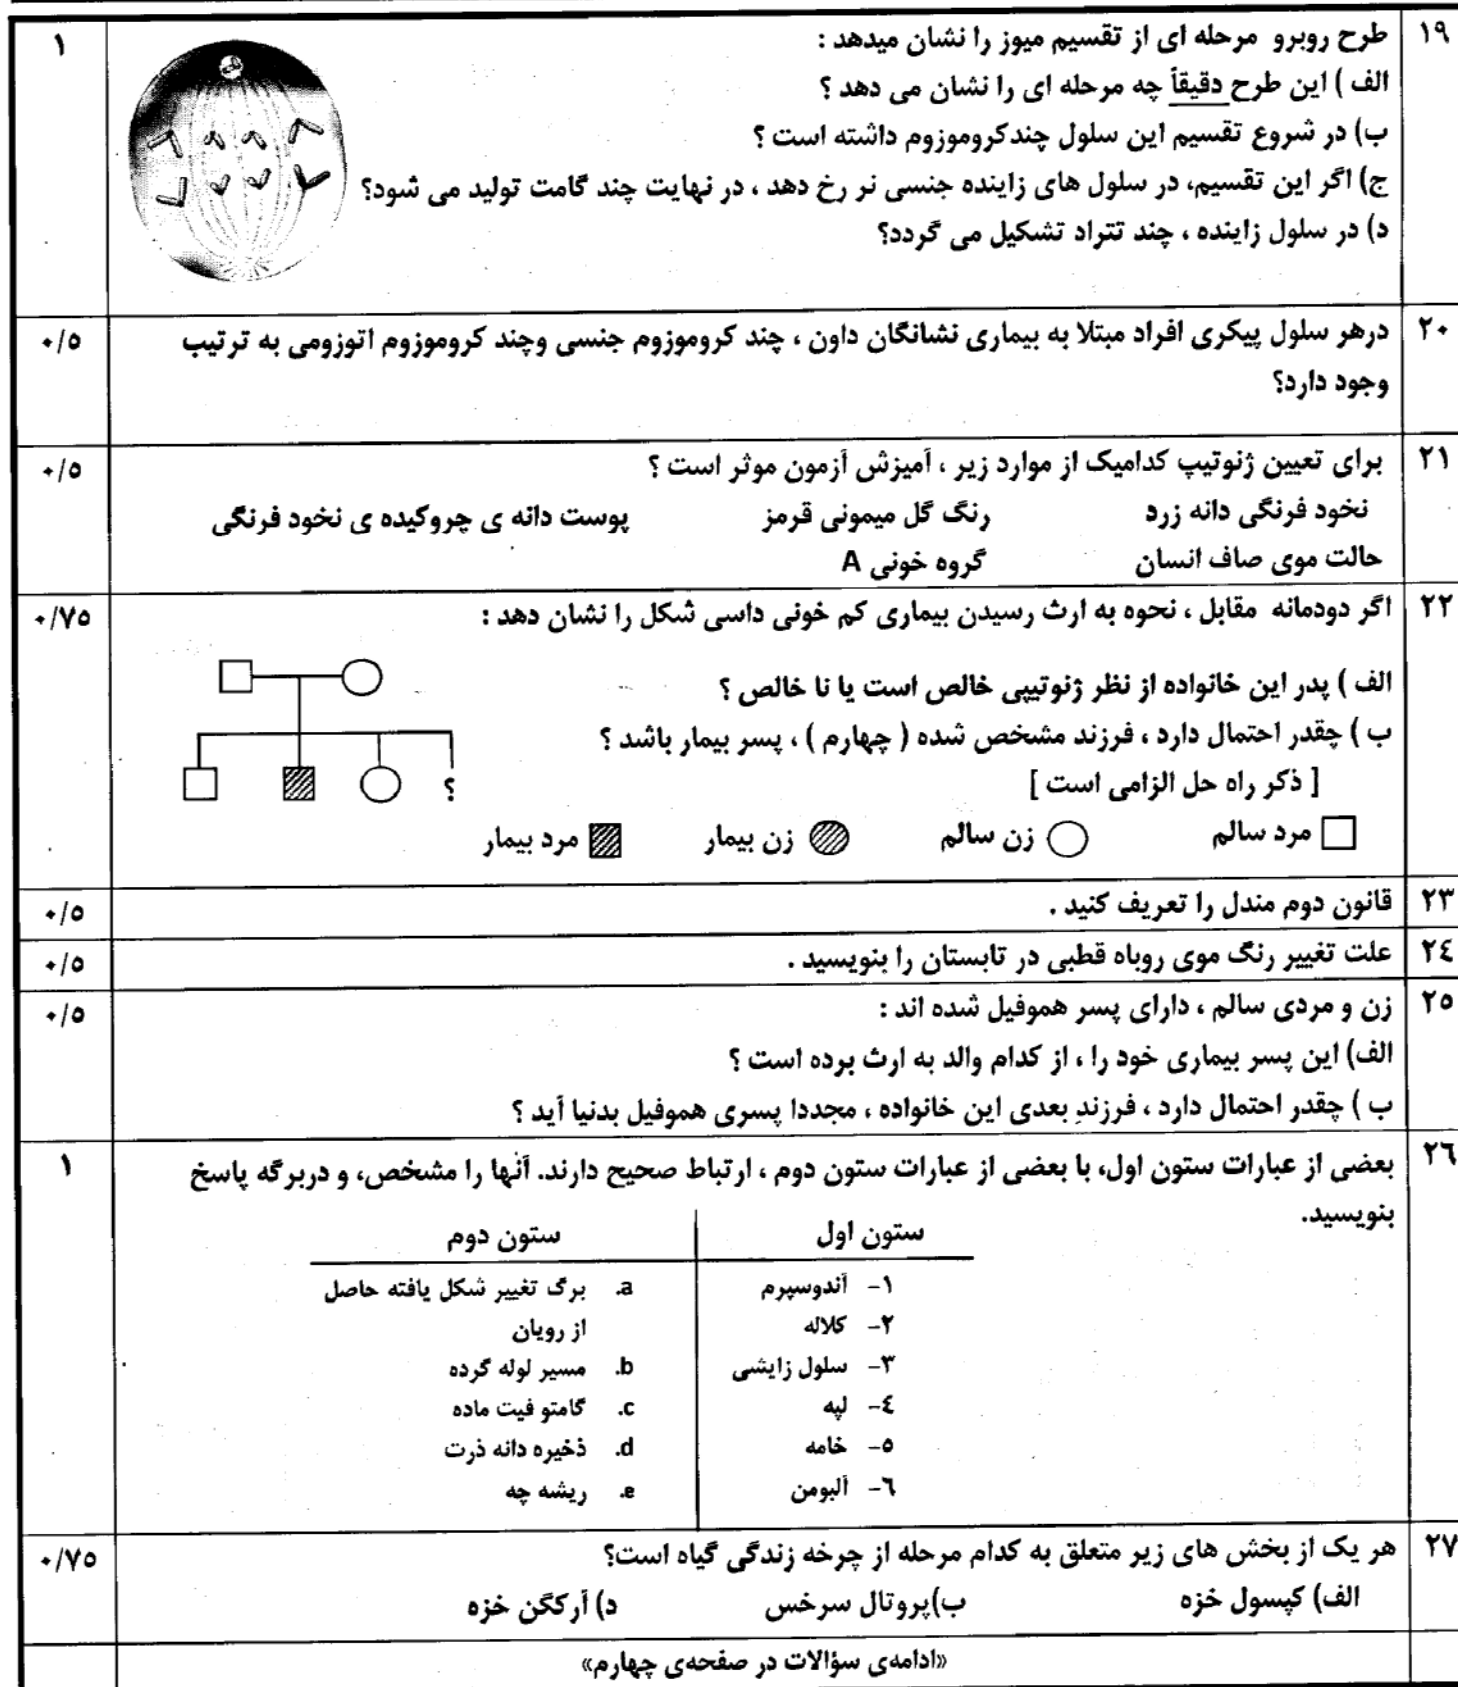 ۱۹ طرح روبرو مرحله ای از تقسیم میوز را نشان میدهد : ۱
الف ) این طرح دقیقاً چه مرحله ای را نشان می دهد ؟
ب) در شروع تقسیم این سلول چندکروموزوم داشته است ؟
ج) اگر این تقسیم، در سلول های زاینده جنسی نر رخ دهد ، در نهایت چند گامت تولید می شود؟
د) در سلول زاینده ، چند تتراد تشکیل می گردد؟
۲۰ درهر سلول پیکری افراد مبتلا به بیماری نشانگان داون ، چند کروموزوم جنسی وچند کروموزوم اتوزومی به ترتیب ۰/۵
وجود دارد؟
۲۱ برای تعیین ژنوتیپ کدامیک از موارد زیر ، آمیزش آزمون موثر است ؟ ۰/۵
نخود فرنگی دانه زرد رنگ گل میمونی قرمز پوست دانه ی چروکیده ی نخود فرنگی
حالت موی صاف انسان گروه خونی A
۲۲ اگر دودمانه مقابل ، نحوه به ارث رسیدن بیماری کم خونی داسی شکل را نشان دهد : ۰/۷۵
الف ) پدر این خانواده از نظر ژنوتیپی خالص است یا نا خالص ؟
ب ) چقدر احتمال دارد ، فرزند مشخص شده ( چهارم ) ، پسر بیمار باشد ؟
؟
[ ذکر راه حل الزامی است ]
مرد سالم زن سالم زن بیمار مرد بیمار
۲۳ قانون دوم مندل را تعریف کنید . ۰/۵
۲٤ علت تغییر رنگ موی روباه قطبی در تابستان را بنویسید . ۰/۵
۲۵ زن و مردی سالم ، دارای پسر هموفیل شده اند : ۰/۵
الف) این پسر بیماری خود را ، از کدام والد به ارث برده است ؟
ب ) چقدر احتمال دارد ، فرزندِ بعدی این خانواده ، مجددا پسری هموفیل بدنیا آید ؟
۲٦ بعضی از عبارات ستون اول، با بعضی از عبارات ستون دوم ، ارتباط صحیح دارند. آنها را مشخص، و دربرگه پاسخ ۱
بنویسید.
ستون اول ستون دوم
۱- آندوسپرم a. برگ تغییر شکل یافته حاصل
۲- کلاله از رویان
۳- سلول زایشی b. مسیر لوله گرده
٤- لپه c. گامتو فیت ماده
۵- خامه d. ذخیره دانه ذرت
٦- آلبومن e. ریشه چه
۲۷ هر یک از بخش های زیر متعلق به کدام مرحله از چرخه زندگی گیاه است؟ ۰/۷۵
الف) کپسول خزه ب)پروتال سرخس د) آرکگن خزه
«ادامه‌ی سؤالات در صفحه‌ی چهارم»